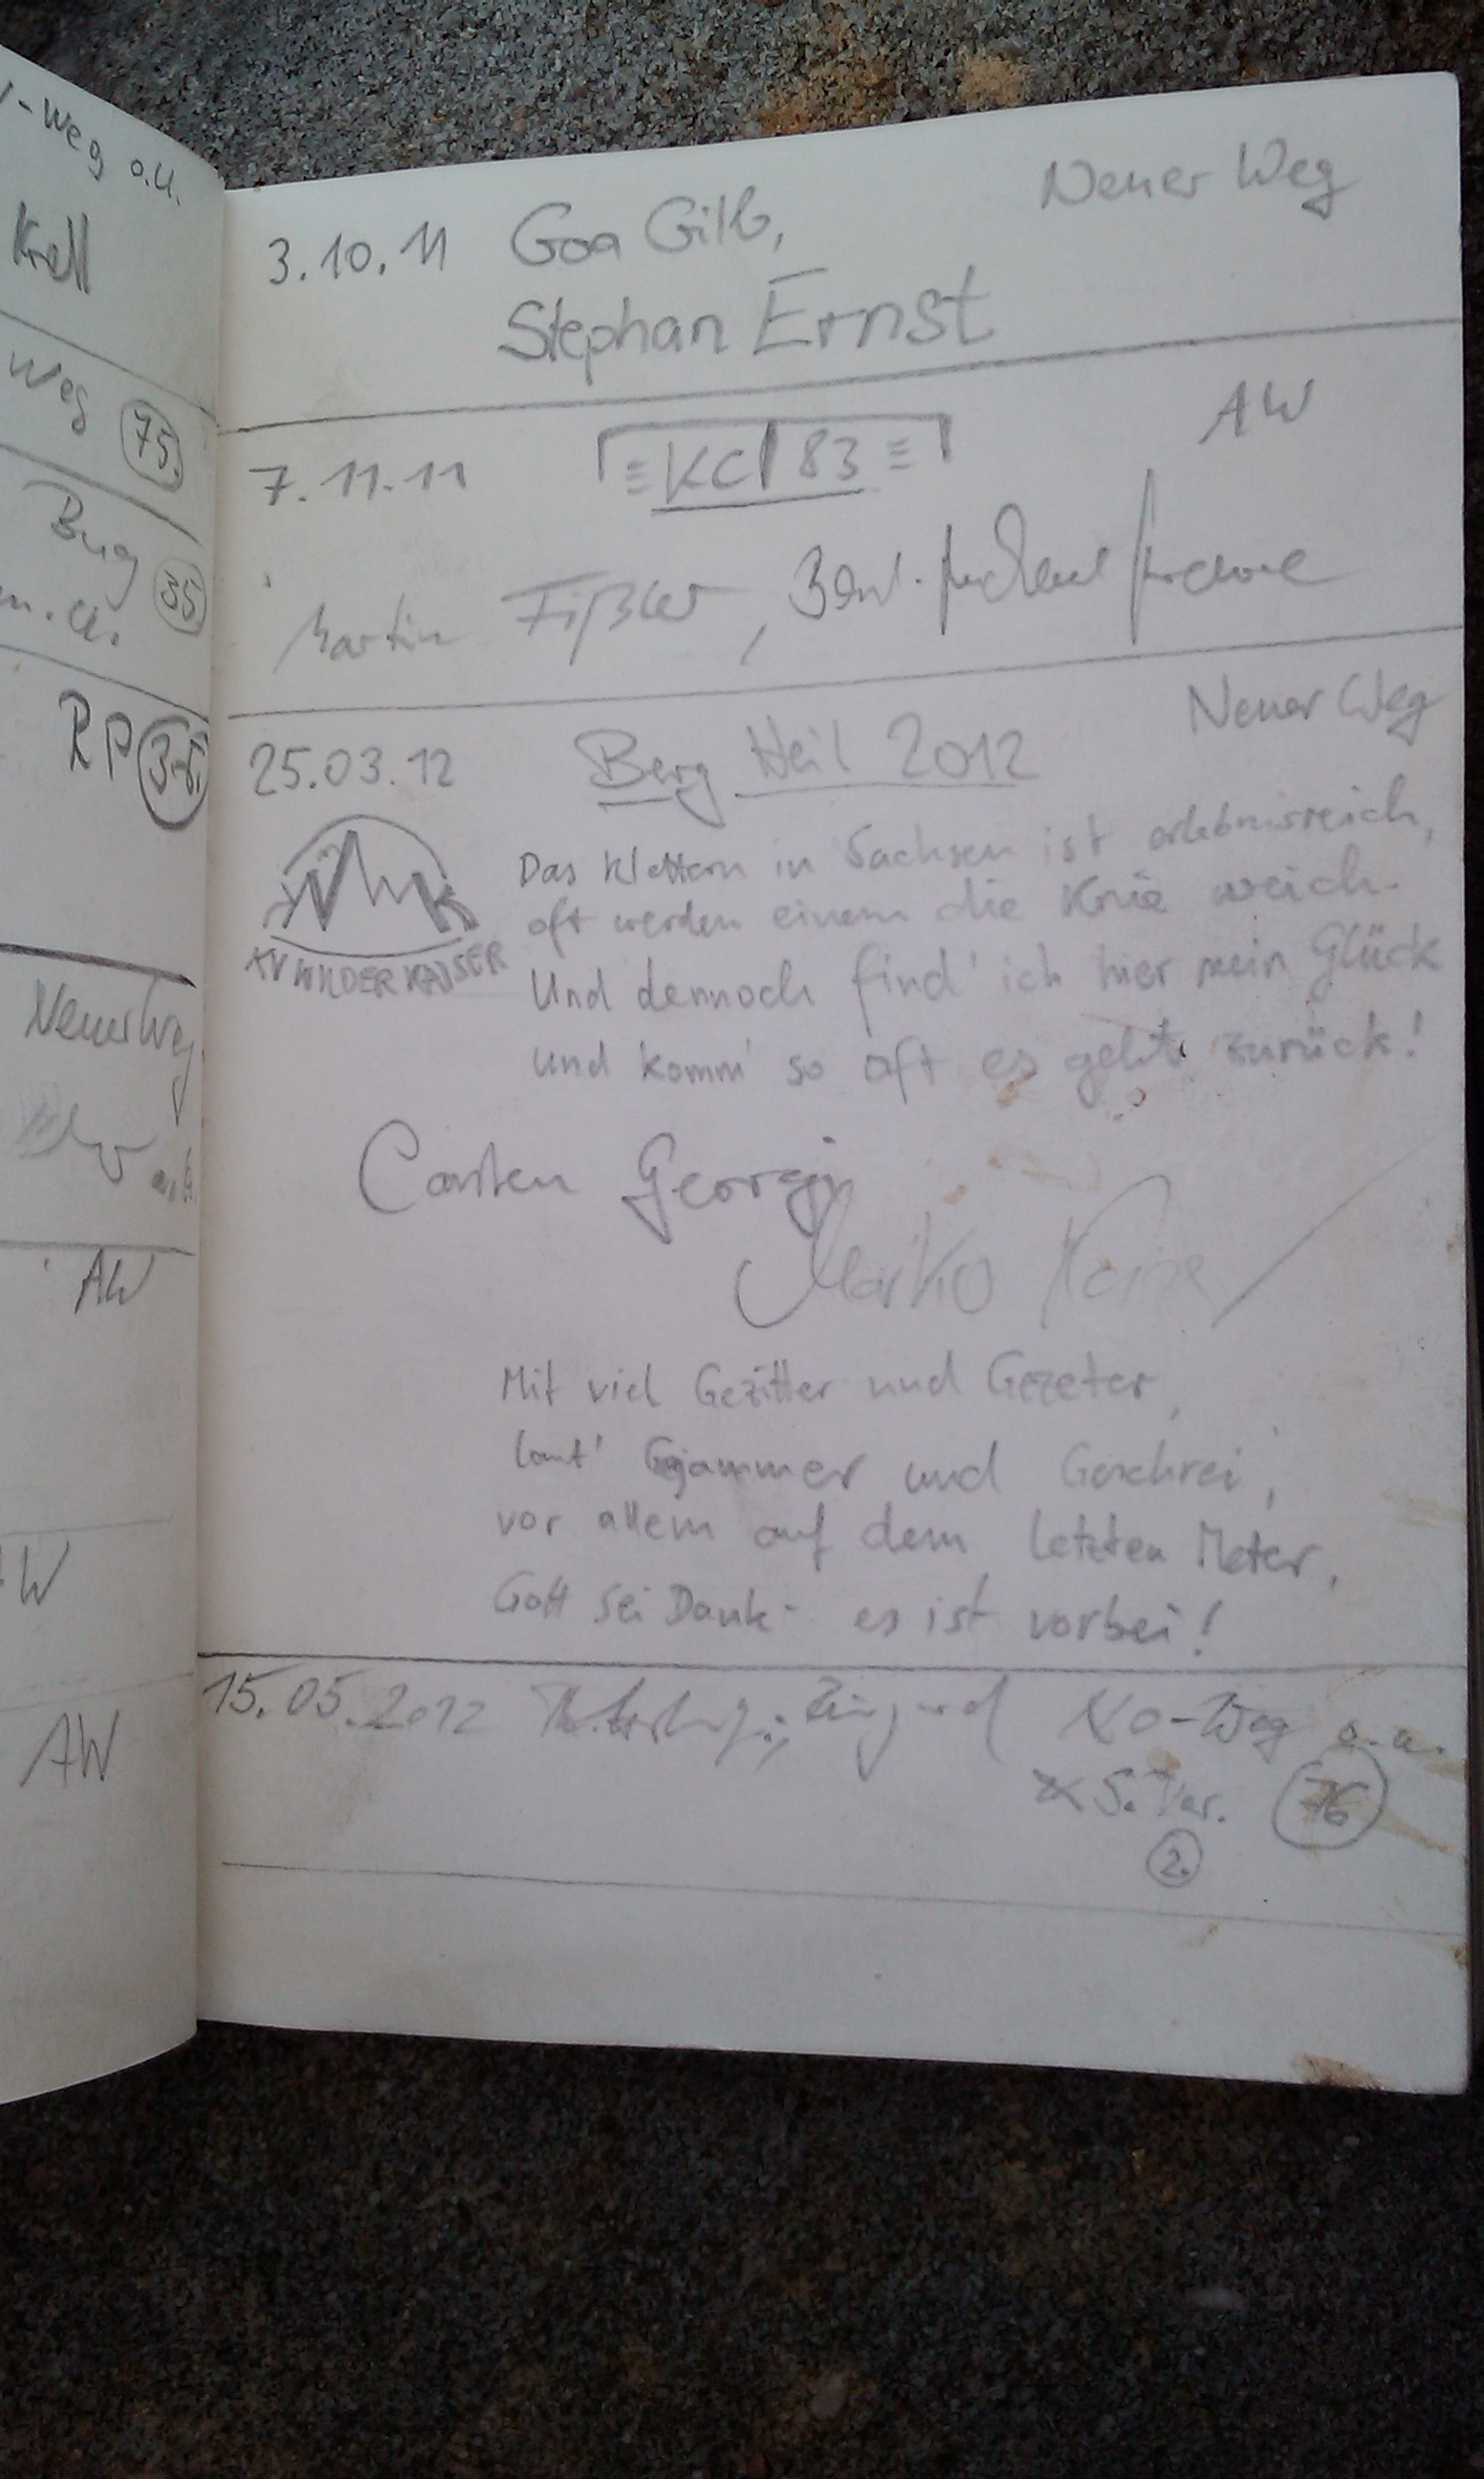 -Weg o.U.
Krell
Weg 75.
Bug 35
m.u.
RP 35.
Neuer Weg
AW
AW
AW
3.10.11 Goa Gilb, Neuer Weg
Stephan Ernst
7.11.11 KCl 83 AW
Martin Fißler,
25.03.12 Berg Heil 2012 Neuer Weg
KV WILDER KAISER
Das Klettern in Sachsen ist erlebnisreich,
oft werden einem die Knie weich.
Und dennoch find' ich hier mein Glück
und komm' so oft es geht zurück!
Carsten Georgi
Marko
Mit viel Gezitter und Gezeter,
laut' Gejammer und Geschrei,
vor allem auf dem letzten Meter,
Gott sei Dank - es ist vorbei!
15.05.2012 NO-Weg o.u.
S. Var. 76
2.